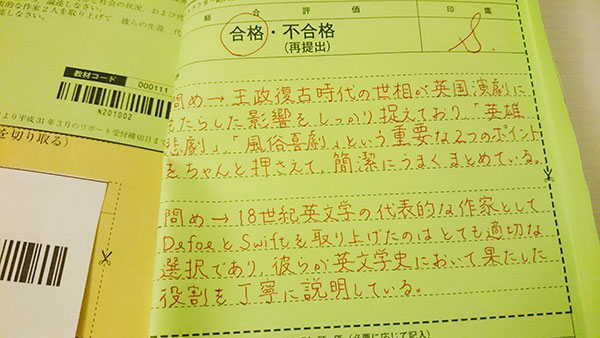 社会の状況、および代
論述しなさい。
表的な作家2人を取り上げて、彼らの生涯、代
教材コード
000111
N201002
より平成31年3月のリポート受付締切日まで
を切り取る)
総合評価
印鑑
合格・不合格
(再提出)
問め→王政復古時代の世相が英国演劇に
もたらした影響をしっかり捉えており「英雄
悲劇」、「風俗喜劇」という重要な2つのポイント
をちゃんと押さえて、簡潔にうまくまとめている。
問め→18世紀英文学の代表的な作家として
DefoeとSwiftを取り上げたのはとても適切な
選択であり、彼らが英文学史において果たした
役割を丁寧に説明している。
(必要に応じて記入)